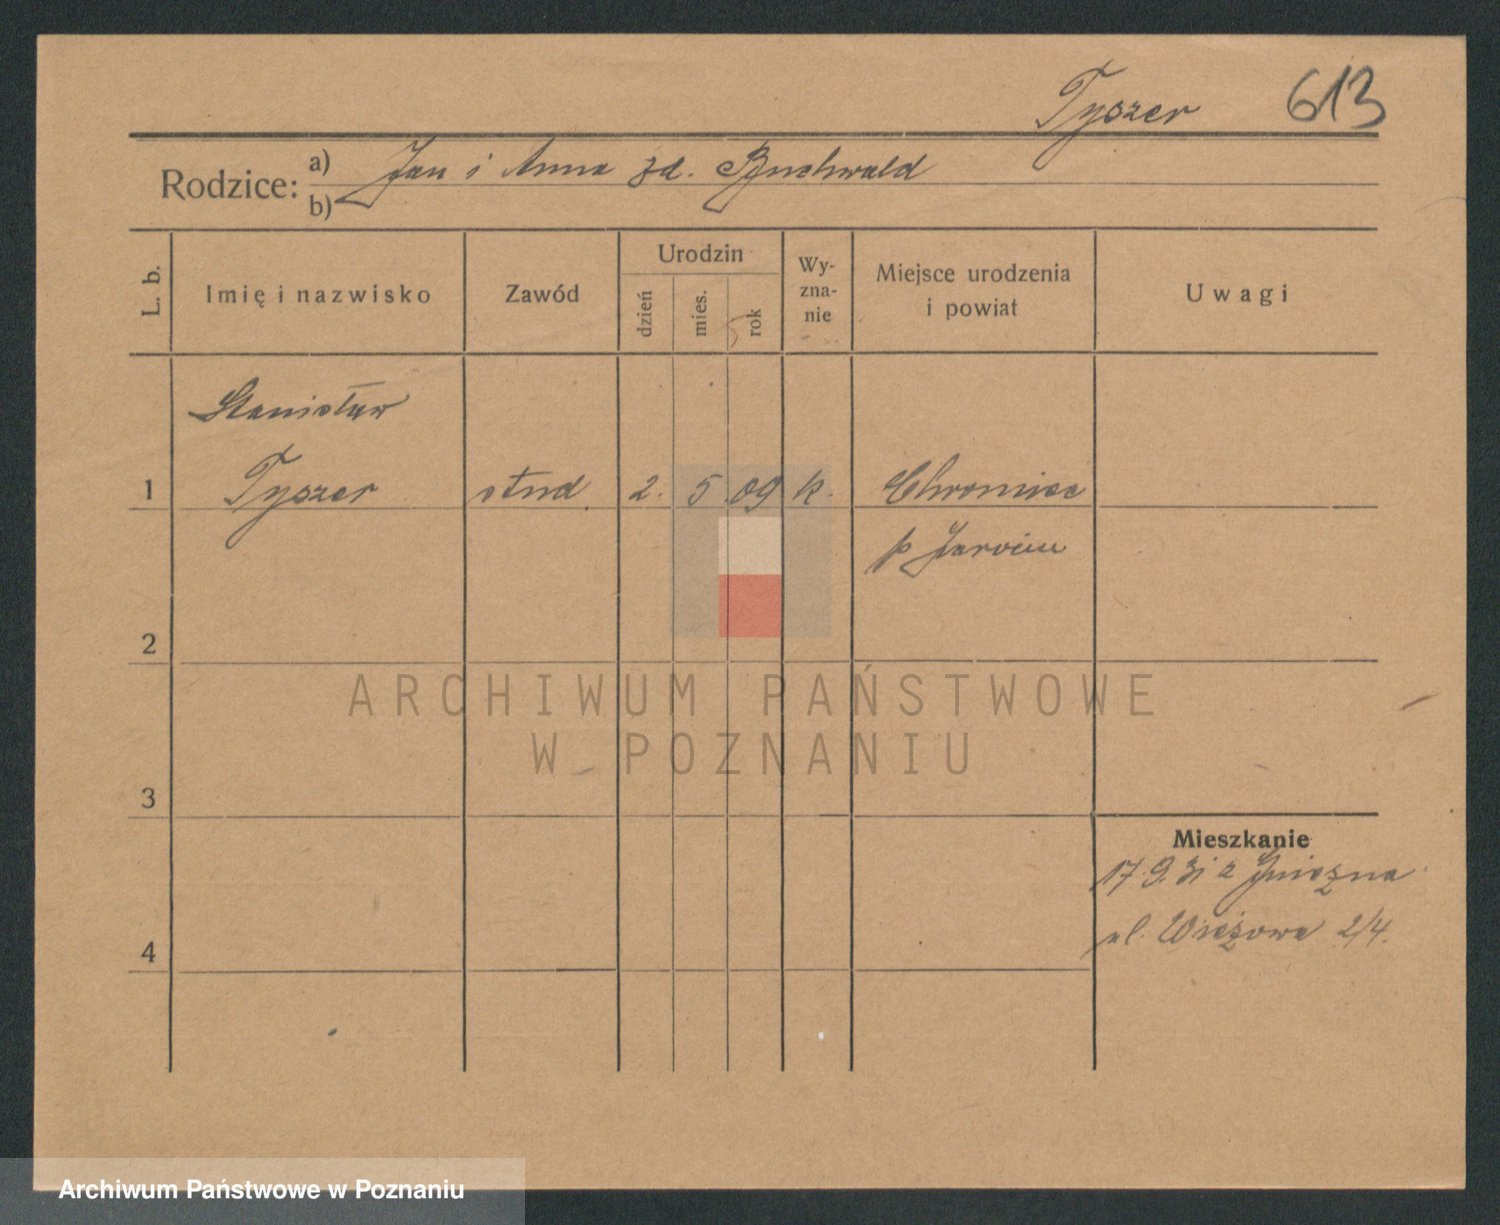 Tyszer 613
Rodzice: a) Jan i Anna zd. Buchwald
b)
L. b.
Imię i nazwisko
Zawód
Urodzin
dzień
mies.
rok
Wy-
zna-
nie
Miejsce urodzenia
i powiat
Uwagi
Stanisław
1 Tyszer stud. 2. 5. 09 k. Chromiec
p Jarocin
2
ARCHIWUM PAŃSTWOWE
W POZNANIU
3
Mieszkanie
17.9.31 z Gniezna
ul. Wieżowa 2/4.
4
Archiwum Państwowe w Poznaniu